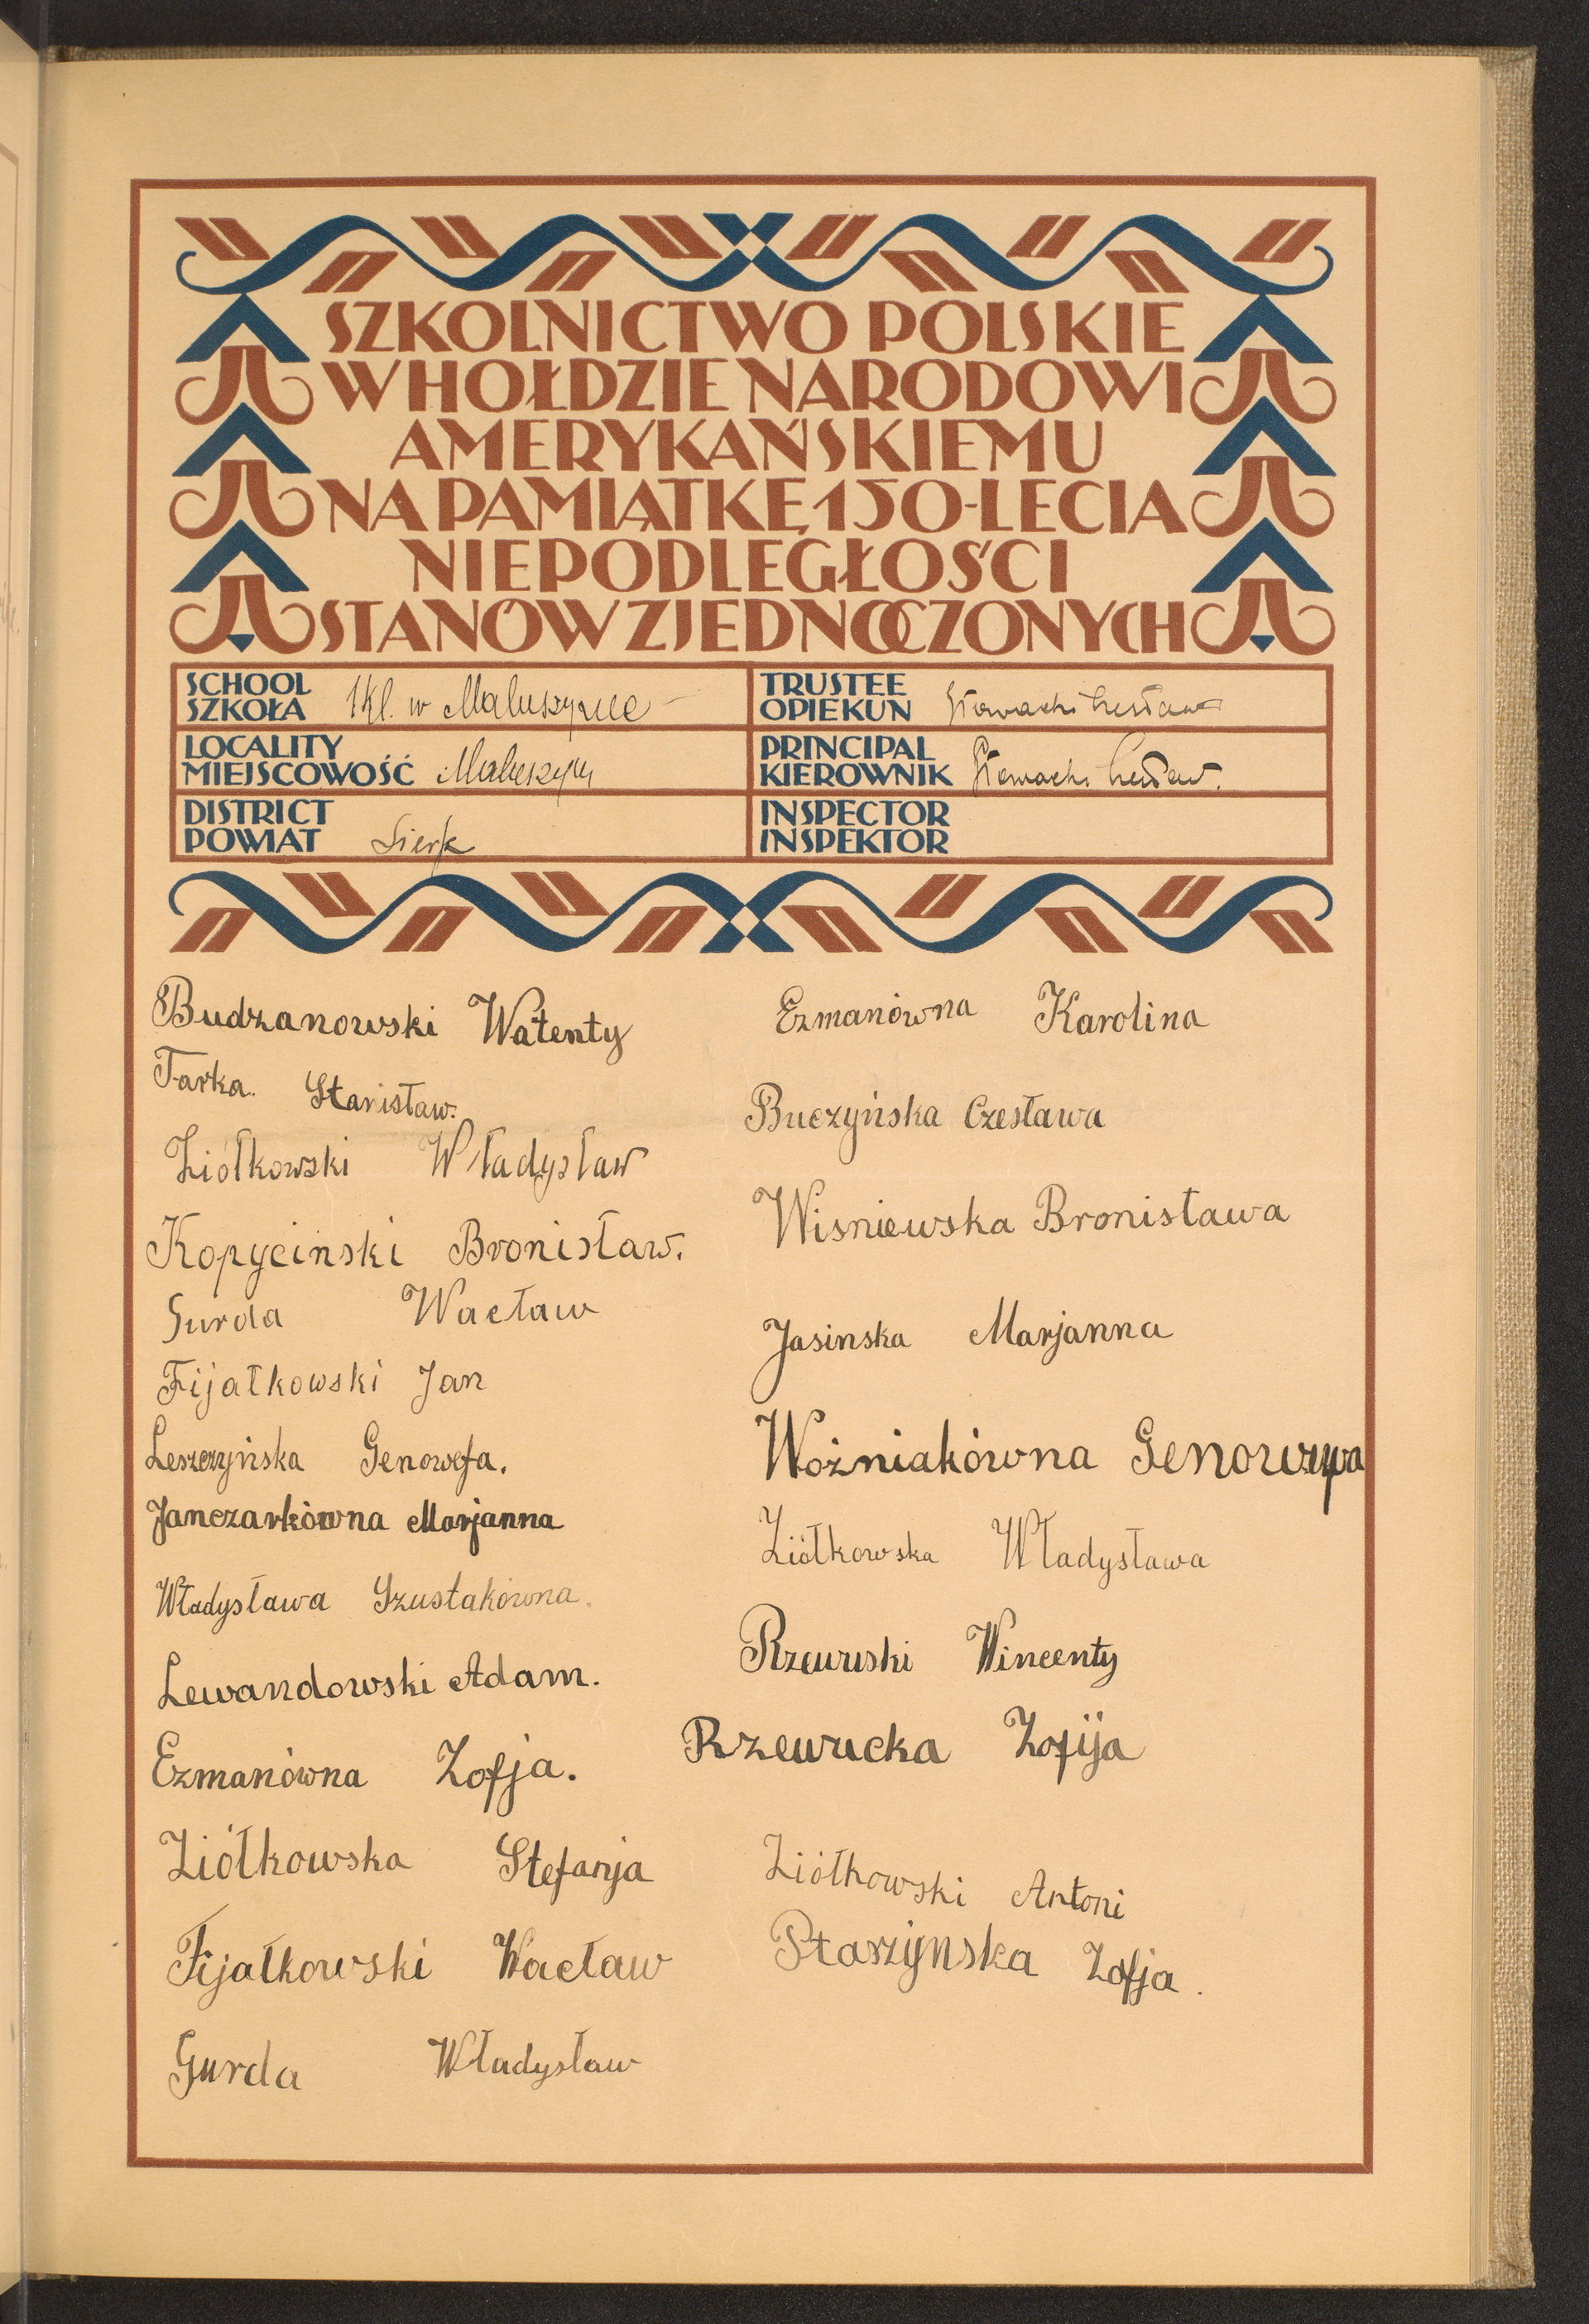 SZKOLNICTWO POLSKIE
W HOŁDZIE NARODOWI
AMERYKAŃSKIEMU
NA PAMIĄTKĘ 150-LECIA
NIEPODLEGŁOŚCI
STANÓW ZJEDNOCZONYCH
SCHOOL
SZKOŁA 1 kl. w Maluszynie
TRUSTEE
OPIEKUN
LOCALITY
MIEJSCOWOŚĆ Maluszyn
PRINCIPAL
KIEROWNIK
DISTRICT
POWIAT Sierp
INSPECTOR
INSPEKTOR
Budzanowski Watenty
Tarka. Stanisław.
Ziółkowski Władysław
Kopyciński Bronisław.
Gurda Wacław
Fijałkowski Jan
Leszczyńska Genowefa.
Janczarkówna Marjanna
Władysława Szustakówna.
Lewandowski Adam.
Ezmanówna Zofja.
Ziółkowska Stefanja
Fijałkowski Wacław
Gurda Władysław
Ezmanówna Karolina
Buczyńska Czesława
Wisniewska Bronisława
Jasinska Marjanna
Woźniakówna
Ziółkowska Władysława
Rzewuski Wincenty
Rzewucka Zofija
Ziółkowski Antoni
Starzynska Zofja.